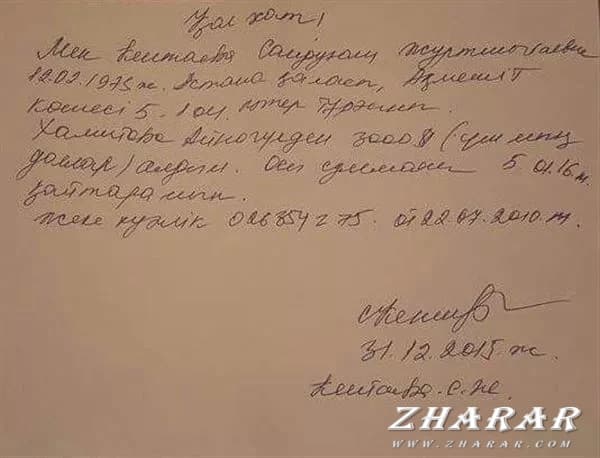 Қолхат!
Мен Кентаева
12.02.1975 ж. Астана қаласы,
көшесі 5-1 04 пәтер тұрамын.
Халитова Айногүлден 3000 $ (үш мың
доллар) алдым. Осы сумманы 5.01.16 ж.
қайтарамын.
Жеке куәлік 026354275. от 22.07.2010 ж.
31.12.2015 ж.
Кентаева. С.Ж.
ZHARAR
WWW.ZHARAR.COM